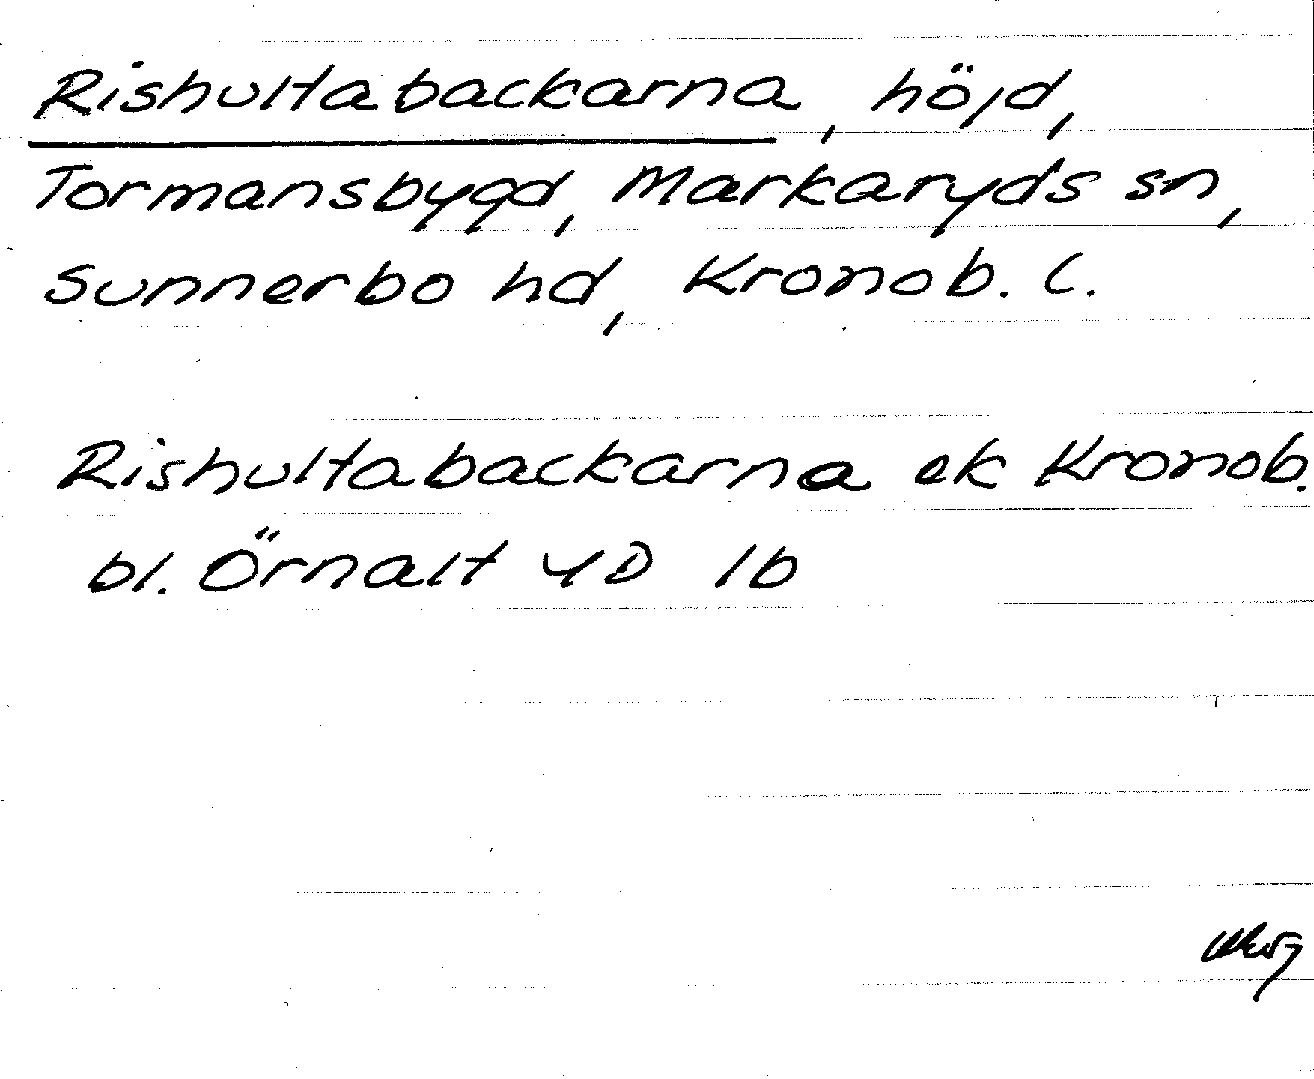 Rishultabackarna, höjd,
Tormansbygd, Markaryds sn,
Sunnerbo hd, Kronob. l.
Rishultabackarna ek Kronob.
bl. Örnalt 4D 1b